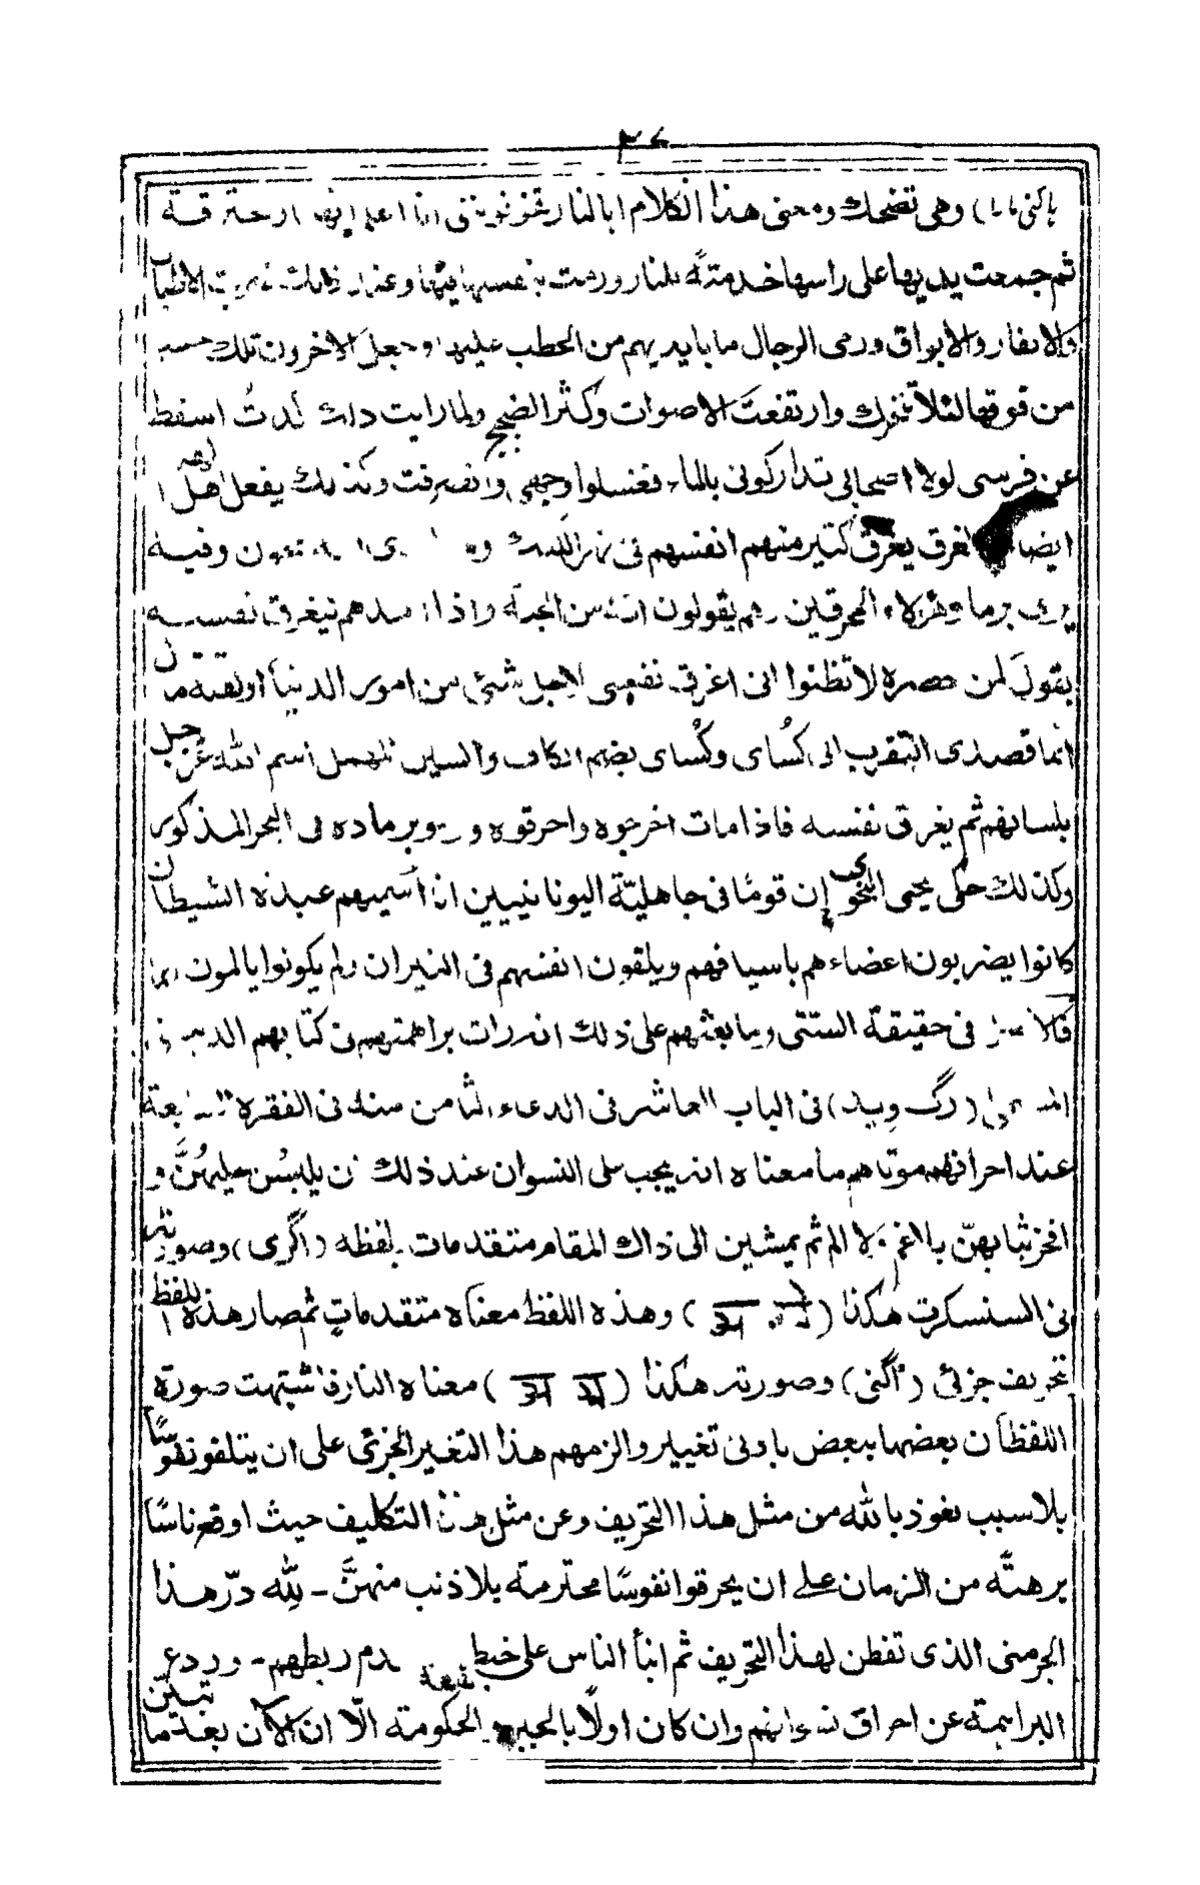 ٣٤
وهى تضحك ومعنى هذا الكلام ابالنار تخوفوننى انا اعلم انها
ثم جمعت يديها على راسها خدمتة للنار ورمت بنفسها فيها وعند ذلك ضربت الاطبال
والانفار والابواق ورمى الرجال ما بايديهم من الحطب عليها وجعل الاخرون تلك
من فوقها لئلا تتحرك وارتفعت الاصوات وكثر الضجيج ولما رايت ذلك كدتُ اسقط
عن فرسى لولا اصحابى تداركونى بالماء فغسلوا وجهى وانصرفت وكذلك يفعل اهل الهند
ايضا الغرق يغرق كثير منهم انفسهم فى نهر الكنك وفيه
يرمى برماد هؤلاء المحرقين وهم يقولون انه من الجنة واذا احدهم ليغرق نفسه
يقول لمن حضره لا تظنوا انى اغرق نفسى لاجل شئ من امور الدنيا او لقلة مال
انما قصدى التقرب الى كُساى وكُساى بضم الكاف والسين المهمل اسم الله عز وجل
بلسانهم ثم يغرق نفسه فاذا مات اخرجوه واحرقوه ورموا برماده فى البحر المذكور
وكذلك حكى يحيى النحوى إن قومًا فى جاهليّة اليونانيين انا اسميهم عبدة الشيطان
كانوا يضربون اعضاءهم باسيافهم ويلقون انفسهم فى النيران ولم يكونوا يالمون
فى حقيقة الستتى وما بعثهم على ذلك انه رات براهمتهم فى كتابهم
(رگ ويد) فى الباب العاشر فى الدعاء الثامن منه فى الفقرة السابعة
عند احراقهم موتاهم ما معناه انه يجب على النسوان عند ذلك ان يلبسُن حليهُنَّ و
افخر ثيابهنّ بلا غم ولا الم ثم يمشين الى ذاك المقام متقدمات بلفظه (اگرى) وصورته
فى السنسكرت هكذا ( ) وهذه اللفظ معناه متقدماتٍ ثم صار هذه اللفظ
تحريف جزئى (اگنى) وصورته هكذا ( ) معناه النار فاشتبهت صورة
اللفظان بعضها ببعض بادنى تغيير والزمهم هذا التغير الجزئى على ان يتلفو نفوسًا
بلا سبب نعوذ بالله من مثل هذا التحريف وعن مثل هذا التكليف حيث اوقع ناسًا
برهتًه من الزمان على ان يحرقوا نفوسًا محترمة بلا ذنب منهنَّ - لِلّه درّ هذا
الجرمنى الذى تفطن لهذا التحريف ثم انبأ الناس على خبط ربطهم - وردع
البراهمة عن احراق نسوانهم وان كان اولًا بالجبر الحكومة الّا ان الآن بعد ما تبيّن